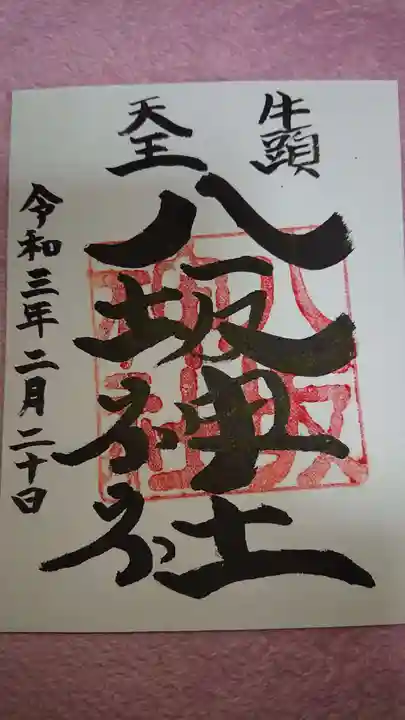 牛頭
天王
八坂神社
令和三年二月二十日
八坂神社